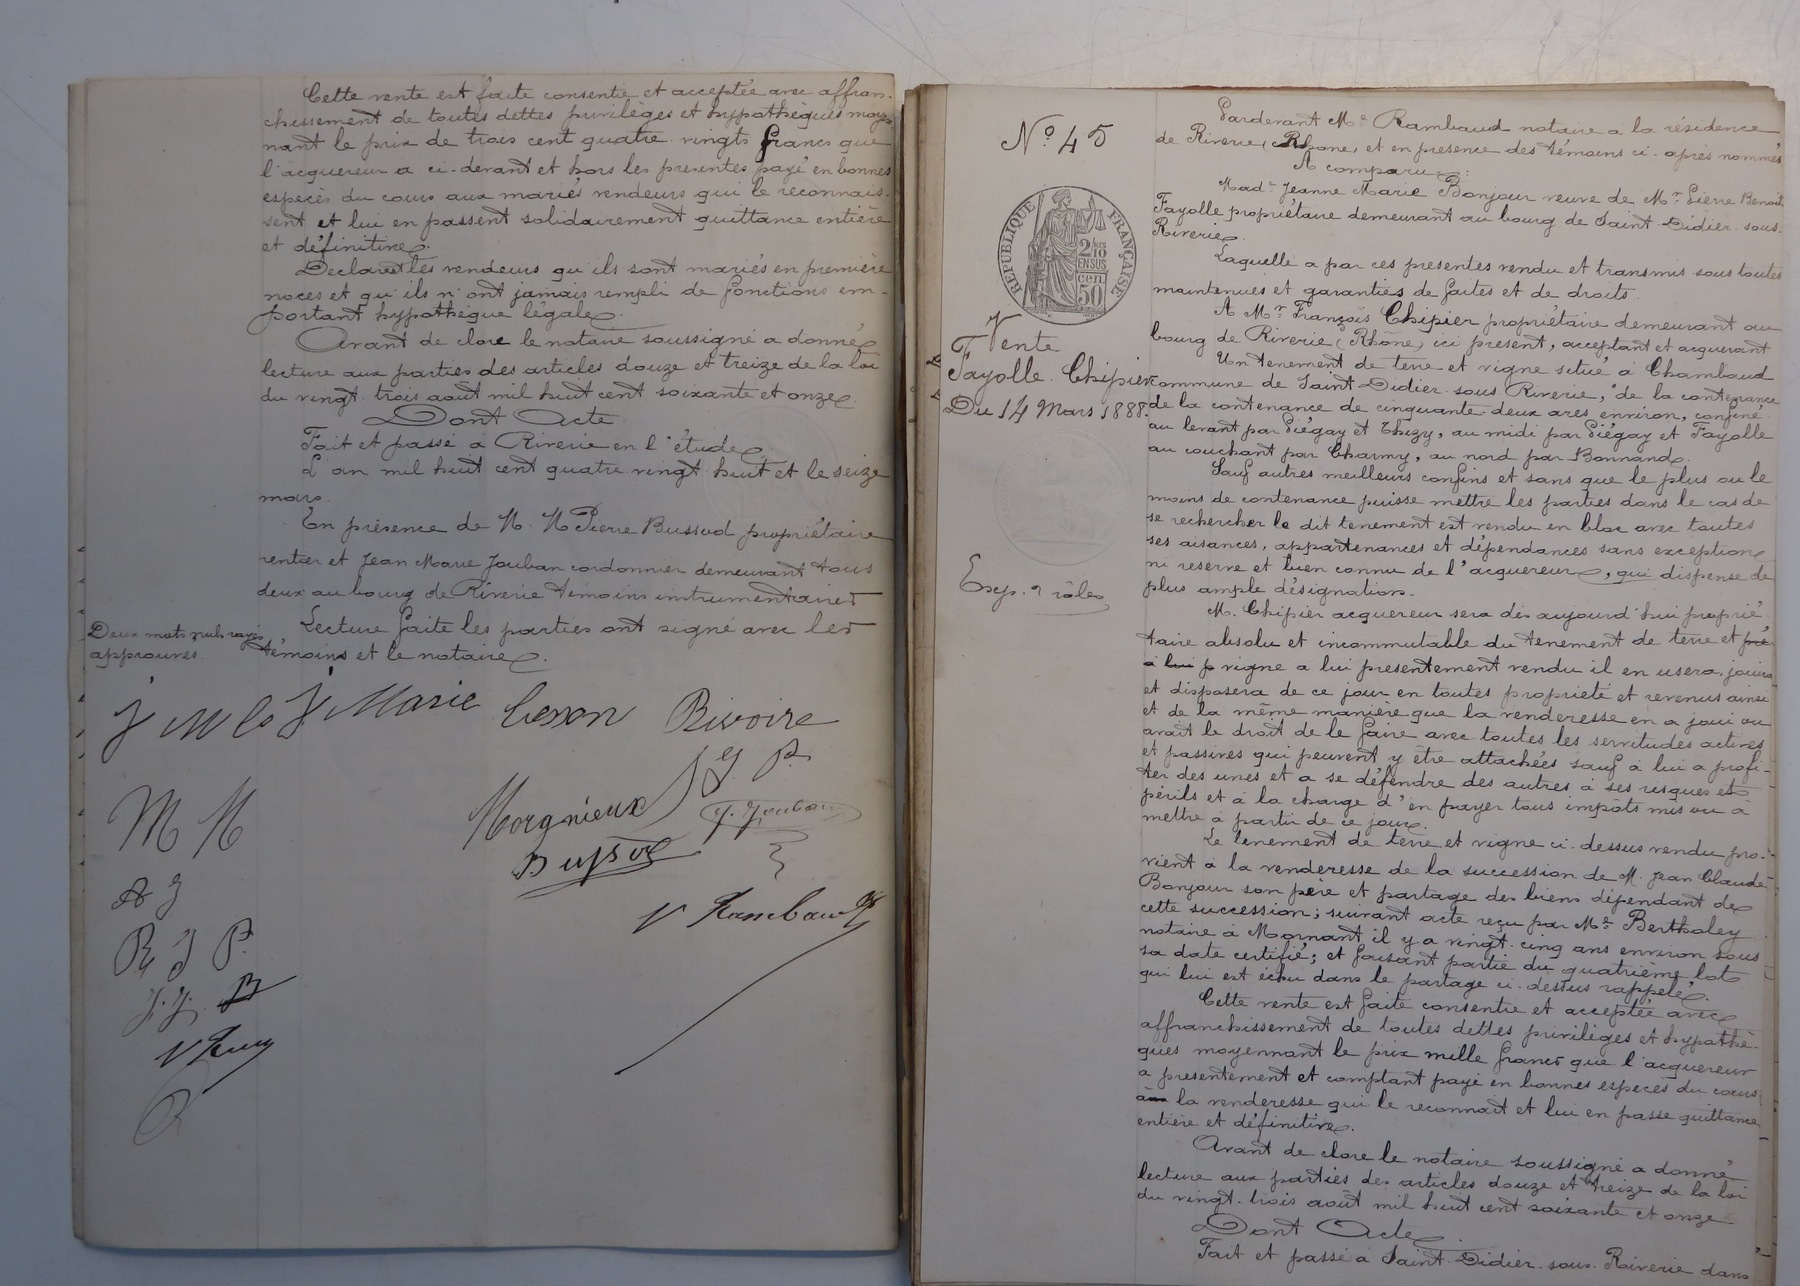 Cette vente est faite consentie et acceptée avec affran-
chissement de toutes dettes privilèges et hypothèques moye
nant le prix de trois cent quatre vingts francs que
l'acquereur a ci-devant et hors les presentes payé en bonnes
espèces du cours aux mariés vendeurs qui le reconnais-
sent et lui en passent solidairement quittance entière
et définitive.
Declarent les vendeurs qu'ils sont mariés en première
noces et qu'ils n'ont jamais rempli de fonctions em-
portant hypothèque légale.
Avant de clore le notaire soussigné a donné
lecture aux parties des articles douze et treize de la loi
du vingt-trois août mil huit cent soixante et onze.
Dont Acte
Fait et passé à Riverie en l'étude
L'an mil huit cent quatre vingt huit et le seize
mars.
En présence de M. M Pierre Bussod propriétaire
rentier et Jean Marie Jouban cordonnier demeurant tous
deux au bourg de Riverie témoins instrumentaires
Lecture faite les parties ont signé avec les
témoins et le notaire.
Deux mots nuls rayés
approuvés
J Marie Besson Rivoire
J. P.
Morgnieux
J. Jouban
Bussod
V Rambaud
M M
R J P.
J. J. B
N° 45
RÉPUBLIQUE FRANÇAISE
2/10 EN SUS
50 cen
Vente
Fayolle-Chipier
Du 14 Mars 1888.
Exp. 2 rôles
Pardevant Me Rambaud notaire a la résidence
de Riverie (Rhône) et en presence des témoins ci-après nommés
A comparu:
Made Jeanne Marie Bonjour veuve de Mr Pierre Benoit
Fayolle propriétaire demeurant au bourg de Saint-Didier-sous-
Riverie.
Laquelle a par ces presentes vendu et transmis sous toutes
maintenues et garanties de faites et de droits.
A Mr François Chipier propriétaire demeurant au
bourg de Riverie (Rhône) ici présent, acceptant et acquerant
Un tenement de terre et vigne situé à Chambaud
commune de Saint-Didier-sous Riverie, de la contenance
de la contenance de cinquante-deux ares environ, confiné
au levant par Piégay et Thizy, au midi par Piégay et Fayolle
au couchant par Charmy, au nord par Bonnand.
Sauf autres meilleurs confins et sans que le plus ou le
moins de contenance puisse mettre les parties dans le cas de
se rechercher le dit tenement est vendu en bloc avec toutes
ses aisances, appartenances et dépendances sans exception
ni reserve et bien connu de l'acquereur, qui dispense de
plus ample désignation.
M. Chipier acquereur sera dès aujourd'hui proprié-
taire absolu et incommutable du tenement de terre et pré
à lui p vigne a lui presentement vendu il en usera, jouira
et disposera de ce jour en toutes propriété et revenus ainsi
et de la même manière que la venderesse en a joui ou
avait le droit de le faire avec toutes les servitudes actives
et passives qui peuvent y être attachées sauf à lui a profi-
ter des unes et a se défendre des autres à ses risques et
périls et à la charge d'en payer tous impôts mis ou à
mettre à partir de ce jour.
Le tenement de terre et vigne ci-dessus vendu pro-
vient à la venderesse de la succession de M. Jean Claude
Bonjour son père et partage des biens dépendant de
cette succession; suivant acte reçu par Me Bertholey
notaire à Mornant il y a vingt-cinq ans environ sous
sa date certifié; et faisant partie du quatrième lot
qui lui est échu dans le partage ci-dessus rappelé.
Cette vente est faite consentie et acceptée avec
affranchissement de toutes dettes privilèges et hypothè-
ques moyennant le prix mille francs que l'acquereur
a presentement et comptant payé en bonnes espèces du cours
aux la venderesse qui le reconnait et lui en passe quittance
entière et définitive.
Avant de clore le notaire soussigné a donné
lecture aux parties des articles douze et treize de la loi
du vingt-trois août mil huit cent soixante et onze
Dont Acte.
Fait et passé à Saint-Didier-sous-Riverie dans